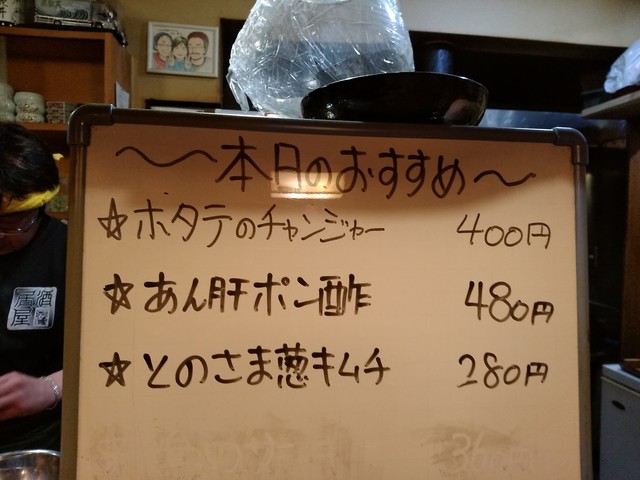 ～本日のおすすめ～
☆ホタテのチャンジャー 400円
☆あん肝ポン酢 480円
☆とのさま葱キムチ 280円
居酒屋